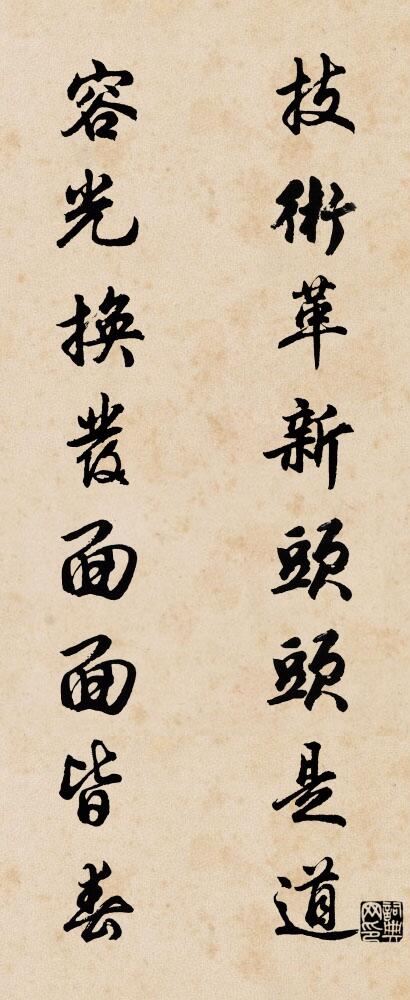 技術革新頭頭是道
容光換發面面皆春
詞典网印